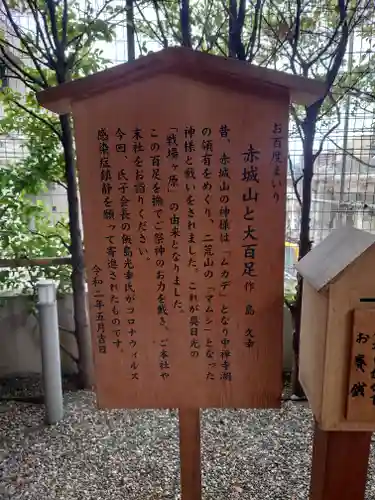 お百度まいり
赤城山と大百足 作 島 久幸
昔、赤城山の神様は「ムカデ」となり中禅寺湖
の領有をめぐり、二荒山の「マムシ」となった
神様と戦いをされました。これが奥日光の
「戦場ヶ原」の由来となりました。
この百足を撫でご祭神のお力を戴き、ご本社や
末社をお詣りください。
今回、氏子会長の飯島光幸氏がコロナウイルス
感染症鎮静を願って寄進されたものです。
令和二年五月吉日
お賽銭